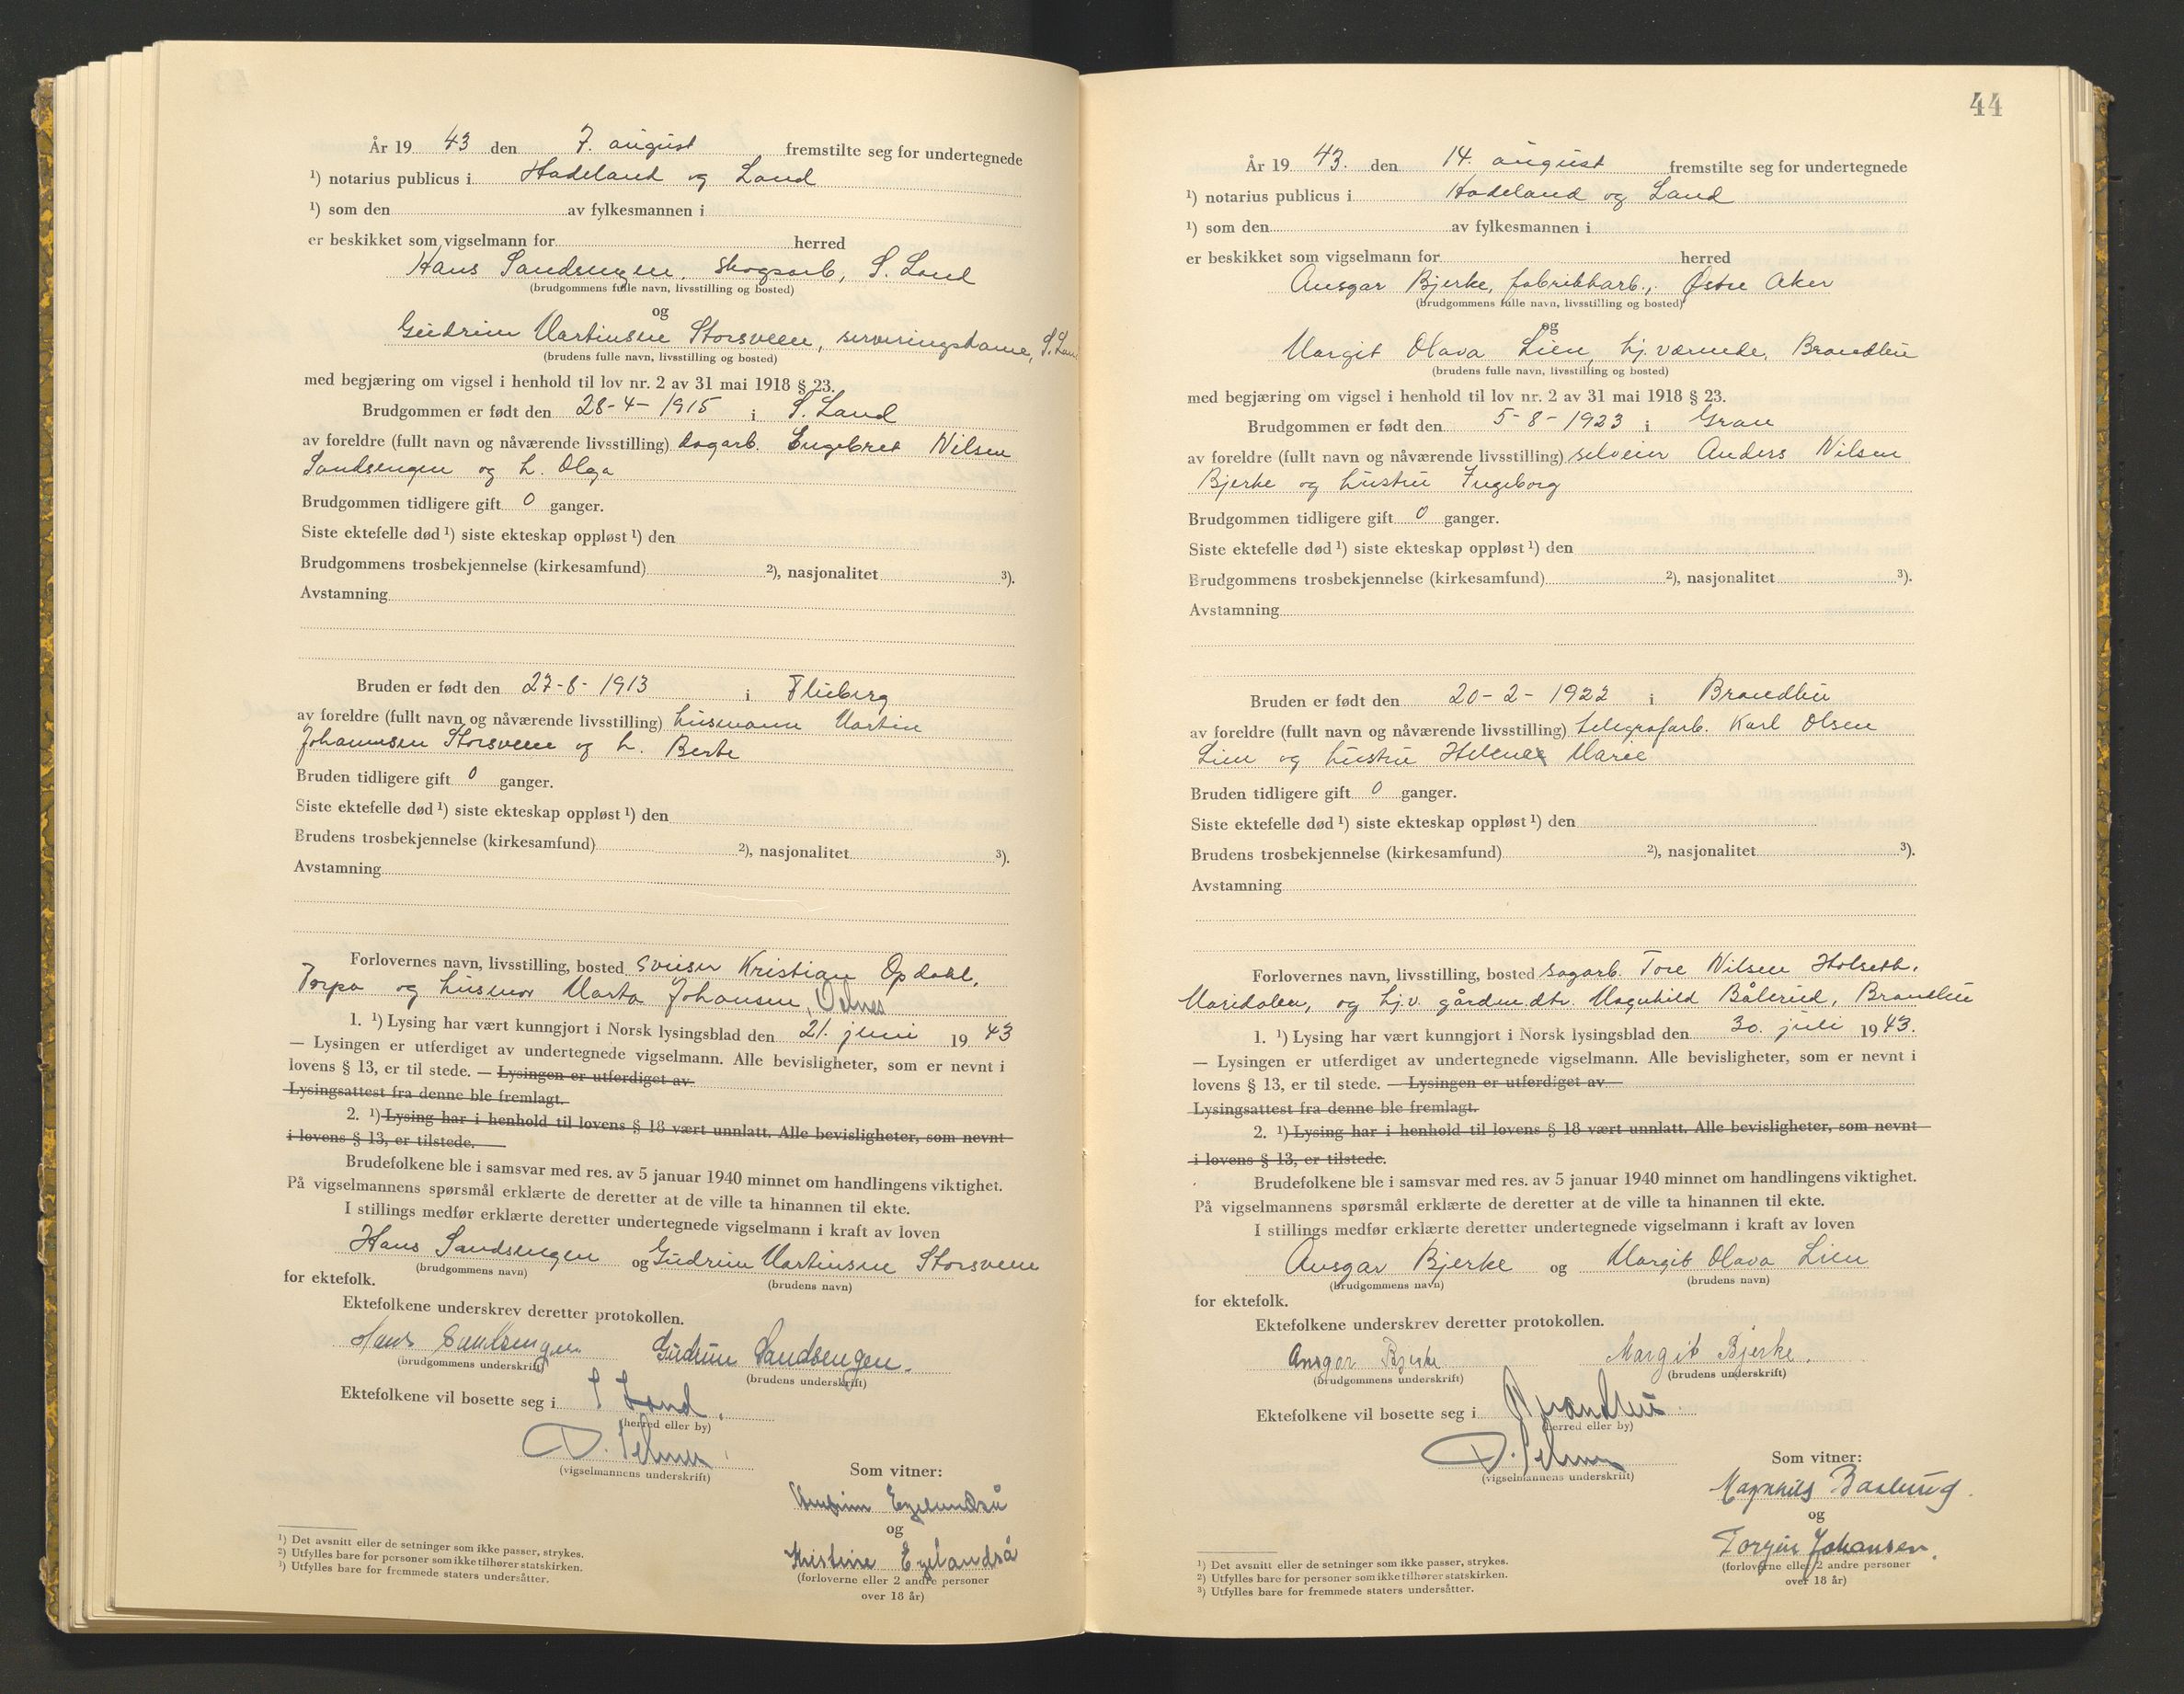 År 19 43 den 7. august fremstilte seg for undertegnede
¹) notarius publicus i Hadeland og Land
¹) som den av fylkesmannen i
er beskikket som vigselmann for herred
Hans Sandsengen, skogsarb, S. Land
(brudgommens fulle navn, livsstilling og bosted)
og
Gudrun Martinsen Storsveen, serveringsdame, S. Lan
(brudens fulle navn, livsstilling og bosted)
med begjæring om vigsel i henhold til lov nr. 2 av 31 mai 1918 § 23.
Brudgommen er født den 28-4-1915 i S. Land
av foreldre (fullt navn og nåværende livsstilling) dagarb. Engebret Nilsen
Sandsengen og h. Olga
Brudgommen tidligere gift 0 ganger.
Siste ektefelle død ¹) siste ekteskap oppløst ¹) den
Brudgommens trosbekjennelse (kirkesamfund) ²), nasjonalitet ³).
Avstamning
Bruden er født den 27-8-1913 i Fluberg
av foreldre (fullt navn og nåværende livsstilling) husmann Martin
Johannsen Storsveen og h. Berte
Bruden tidligere gift 0 ganger.
Siste ektefelle død ¹) siste ekteskap oppløst ¹) den
Brudens trosbekjennelse (kirkesamfund) ²), nasjonalitet ³).
Avstamning
Forlovernes navn, livsstilling, bosted sveiser Kristian Opdahl,
Torpa og husmor Marta Johansen, Odnes
1. ¹) Lysing har vært kunngjort i Norsk lysingsblad den 21. juni 19 43
— Lysingen er utferdiget av undertegnede vigselmann. Alle bevisligheter, som er nevnt i
lovens § 13, er til stede. — Lysingen er utferdiget av
Lysingsattest fra denne ble fremlagt.
2. ¹) Lysing har i henhold til lovens § 18 vært unnlatt. Alle bevisligheter, som nevnt
i lovens § 13, er tilstede.
Brudefolkene ble i samsvar med res. av 5 januar 1940 minnet om handlingens viktighet.
På vigselmannens spørsmål erklærte de deretter at de ville ta hinannen til ekte.
I stillings medfør erklærte deretter undertegnede vigselmann i kraft av loven
Hans Sandsengen og Gudrun Martinsen Storsveen
(brudgommens navn) (brudens navn)
for ektefolk.
Ektefolkene underskrev deretter protokollen.
Hans Sandsengen Gudrun Sandsengen.
(brudgommens underskrift) (brudens underskrift)
Ektefolkene vil bosette seg i S Land.
(herred eller by)
(vigselmannens underskrift)
Som vitner:
og
Kristine Egelandså
(forloverne eller 2 andre personer
over 18 år)
¹) Det avsnitt eller de setninger som ikke passer, strykes.
²) Utfylles bare for personer som ikke tilhører statskirken.
³) Utfylles bare for fremmede staters undersåtter.
44
År 19 43. den 14. august fremstilte seg for undertegnede
¹) notarius publicus i Hadeland og Land
¹) som den av fylkesmannen i
er beskikket som vigselmann for herred
Ansgar Bjerke, fabrikkarb., Østre Aker
(brudgommens fulle navn, livsstilling og bosted)
og
Margit Olava Lien, hj.værende, Brandbu
(brudens fulle navn, livsstilling og bosted)
med begjæring om vigsel i henhold til lov nr. 2 av 31 mai 1918 § 23.
Brudgommen er født den 5-8-1923 i Gran
av foreldre (fullt navn og nåværende livsstilling) selveier Anders Nilsen
Bjerke og hustru Ingeborg
Brudgommen tidligere gift 0 ganger.
Siste ektefelle død ¹) siste ekteskap oppløst ¹) den
Brudgommens trosbekjennelse (kirkesamfund) ²), nasjonalitet ³).
Avstamning
Bruden er født den 20-2-1922 i Brandbu
av foreldre (fullt navn og nåværende livsstilling) telegrafarb. Karl Olsen
Lien og hustru Helene Marie
Bruden tidligere gift 0 ganger.
Siste ektefelle død ¹) siste ekteskap oppløst ¹) den
Brudens trosbekjennelse (kirkesamfund) ²), nasjonalitet ³).
Avstamning
Forlovernes navn, livsstilling, bosted sagarb. Tore Nilsen Holseth,
Maridalen, og hj.v. gårdm.dtr. Magnhild Bålerud, Brandbu
1. ¹) Lysing har vært kunngjort i Norsk lysingsblad den 30. juli 19 43.
— Lysingen er utferdiget av undertegnede vigselmann. Alle bevisligheter, som er nevnt i
lovens § 13, er til stede. — Lysingen er utferdiget av
Lysingsattest fra denne ble fremlagt.
2. ¹) Lysing har i henhold til lovens § 18 vært unnlatt. Alle bevisligheter, som nevnt
i lovens § 13, er tilstede.
Brudefolkene ble i samsvar med res. av 5 januar 1940 minnet om handlingens viktighet.
På vigselmannens spørsmål erklærte de deretter at de ville ta hinannen til ekte.
I stillings medfør erklærte deretter undertegnede vigselmann i kraft av loven
Ansgar Bjerke og Margit Olava Lien
(brudgommens navn) (brudens navn)
for ektefolk.
Ektefolkene underskrev deretter protokollen.
Ansgar Bjerke Margit Bjerke.
(brudgommens underskrift) (brudens underskrift)
Ektefolkene vil bosette seg i Brandbu
(herred eller by)
(vigselmannens underskrift)
Som vitner:
og
Johansen.
(forloverne eller 2 andre personer
over 18 år)
¹) Det avsnitt eller de setninger som ikke passer, strykes.
²) Utfylles bare for personer som ikke tilhører statskirken.
³) Utfylles bare for fremmede staters undersåtter.